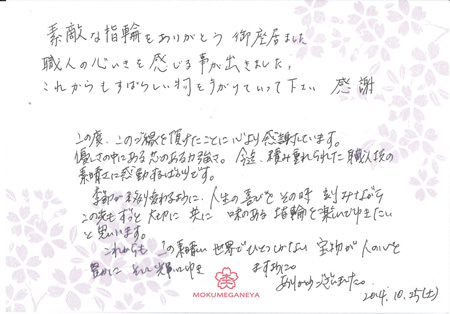 素敵な指輪をありがとう御座居ました
職人の心いきを感じる事が出きました。
これからもすばらしい物を手がけていって下さい 感謝
この度、このご縁を頂けたことに心より感謝しています。
優しさの中にある芯のある力強さ。今迄、積み重ねられた職人技の
素晴さに感動するばかりです。
季節が移り変わるように、人生の喜びをその時刻みながら
この先もずっと大切に共に味のある指輪を楽しんでゆきたい
と思います。
これからも、この素晴しい世界でひとつしかない宝物が人の心を
豊かに そして輝いてゆき ますように。
ありがとうございました。
MOKUMEGANEYA
2014.10.25(土)